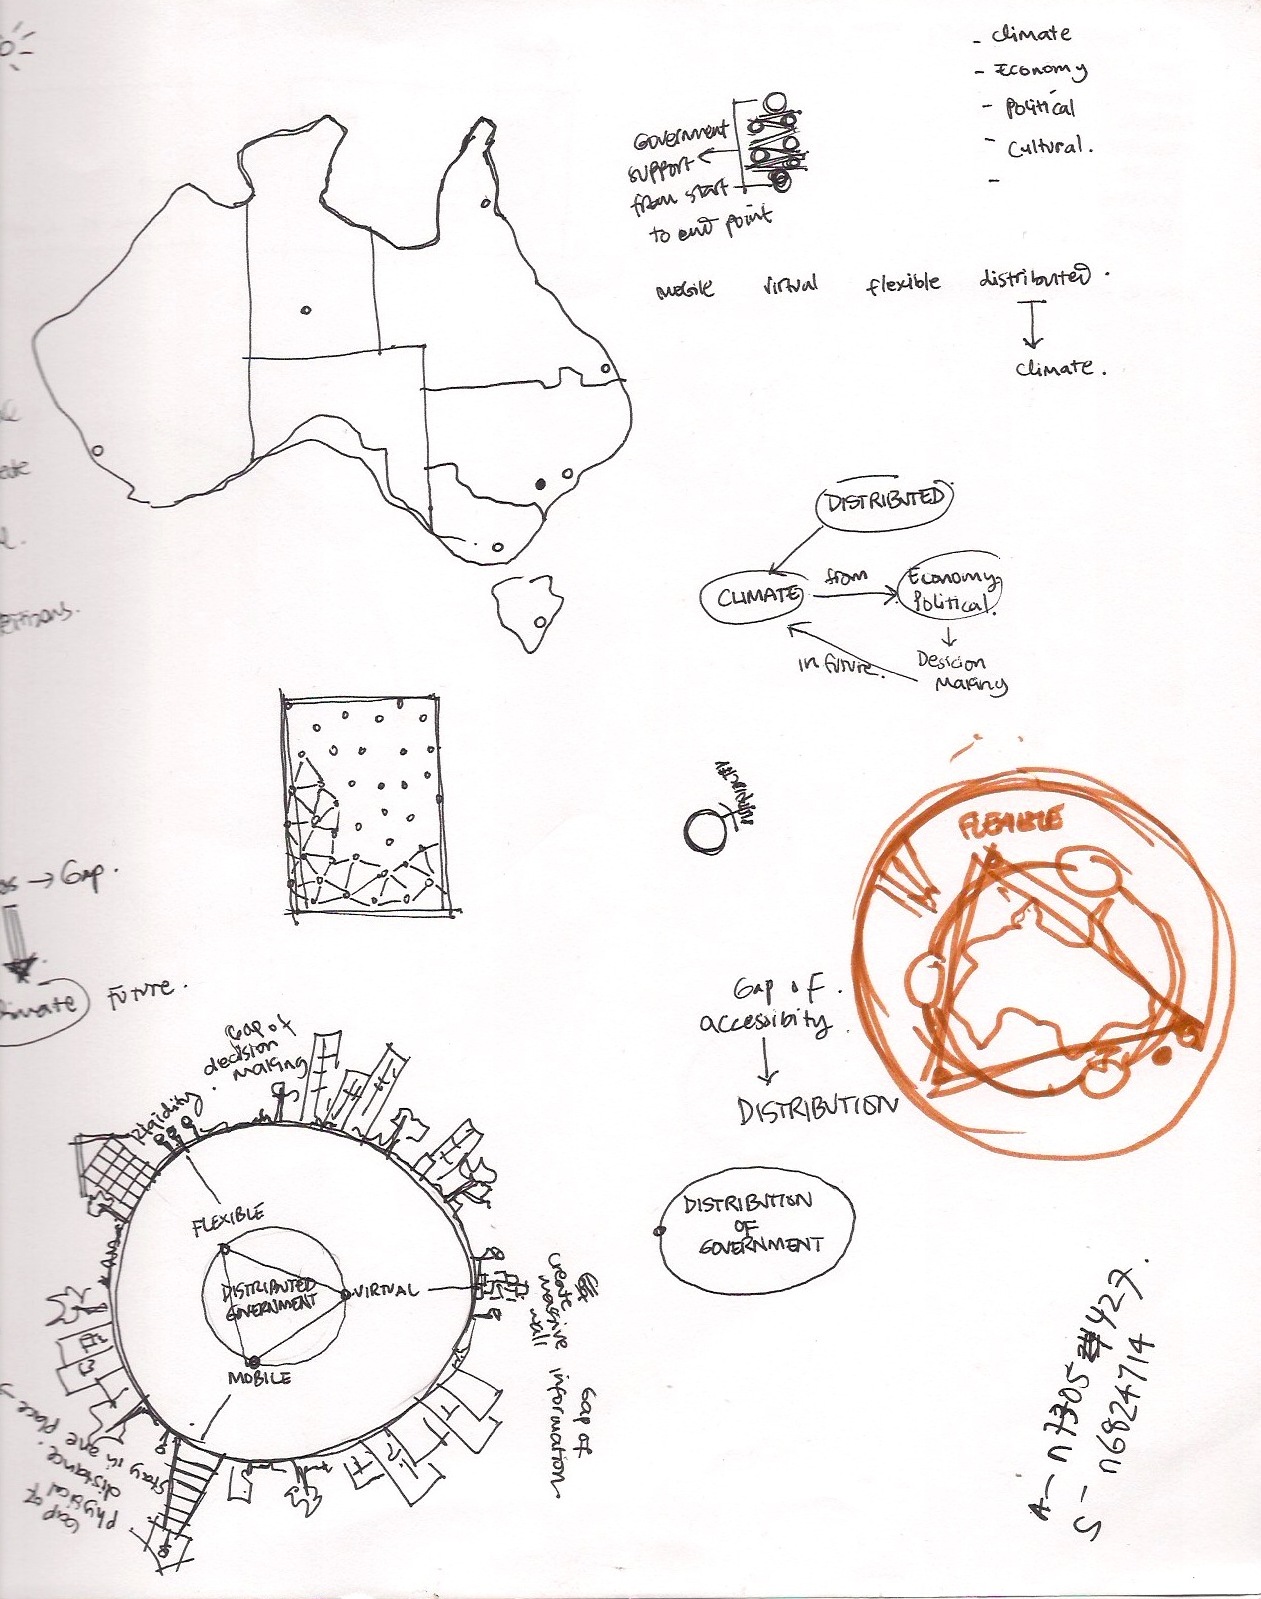 - climate
- Economy
- Political
- Cultural.
-
Government
support
from start
to end point
mobile virtual flexible distributed.
climate.
DISTRIBUTED
CLIMATE
from
Economy
Political.
in future.
Desicion
Making
→ Gap.
Future.
FLEXIBLE
Gap of
accessibity
DISTRIBUTION
DISTRIBUTION
OF
GOVERNMENT
Gap of
decision
making
Rigidity.
FLEXIBLE
DISTRIBUTED
GOVERNMENT
VIRTUAL
MOBILE
create
massive
wall
Gap of
information
Gap of
physical
distance.
stay in one place
S - n6824714